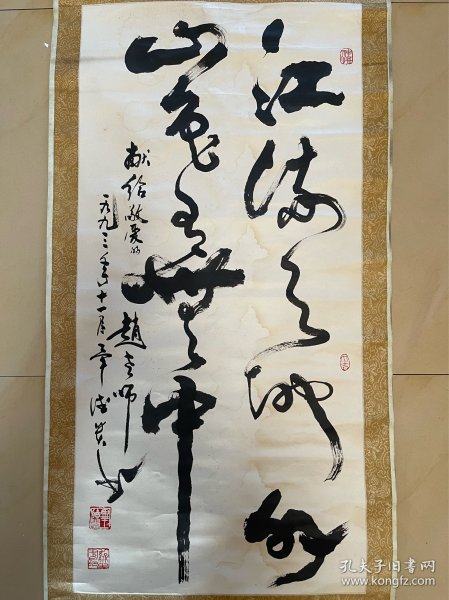 江流天地外
山色有無中
献给敬爱的
趙老师
一九九三年十一月
书
孔夫子旧书网
www.kongfz.com